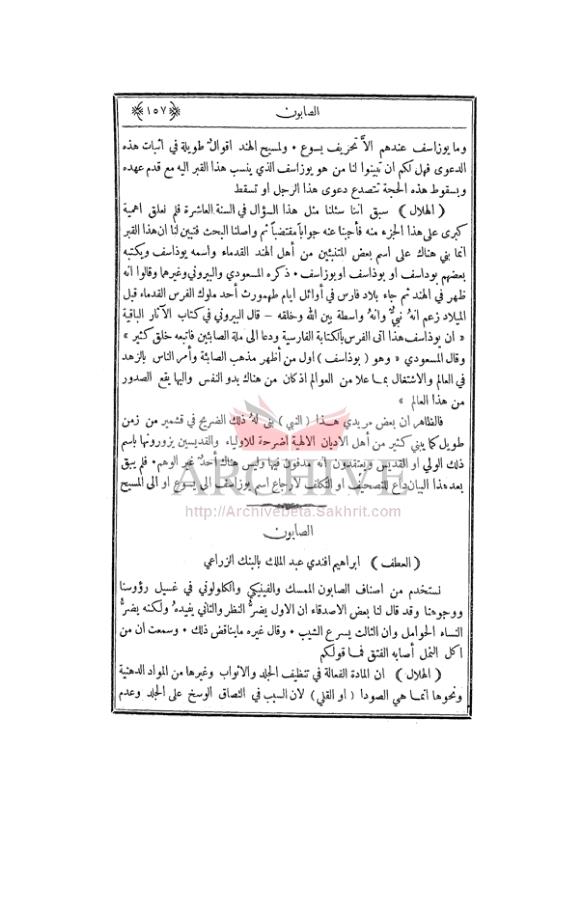 الصابون ﴿١٥٧﴾
وما يوزاسف عندهم الاَّ تحريف يسوع • ولمسيح الهند اقوالٌ طويلة في اثبات هذه
الدعوى فهل لكم ان تبينوا لنا من هو يوزاسف الذي ينسب هذا القبر اليه مع قدم عهده
وبسقوط هذه الحجة تتصدع دعوى هذا الرجل او تسقط
( الهلال ) سبق اننا سئلنا مثل هذا السؤال في السنة العاشرة فلم نعلق اهمية
كبرى على هذا الجزء منه فأجبنا عنه جواباً مقتضباً ثم واصلنا البحث فتبين لنا ان هذا القبر
انما بني هناك على اسم بعض المتنبئين من أهل الهند القدماء واسمه يوذاسف ويكتبه
بعضهم بوداسف او بوذاسف او بوزاسف • ذكره المسعودي والبيروني وغيرها وقالوا انه
ظهر في الهند ثم جاء بلاد فارس في أوائل ايام طهمورث أحد ملوك الفرس القدماء قبل
الميلاد زعم انهُ نبيٌّ وانهُ واسطة بين الله وخلقه – قال البيروني في كتاب الآثار الباقية
« ان يوذاسف هذا اتى الفرس بالكتابة الفارسية ودعا الى ملة الصابئين فاتبعه خلق كثير »
وقال المسعودي « وهو ( بوذاسف ) اول من أظهر مذهب الصابئة وأمر الناس بالزهد
في العالم والاشتغال بما علا من العوالم اذ كان من هناك بدو النفس واليها يقع الصدور
من هذا العالم »
فالظاهر ان بعض مريدي هذا ( النبي ) بنى لهُ ذلك الضريح في قشمير من زمن
طويل كما يبني كثير من أهل الاديان الالهية اضرحة للاولياء والقديسين يزورونها باسم
ذلك الولي او القديس ويعتقدون انه مدفون فيها وليس هناك أحدٌ غير الوهم • فلم يبق
بعد هذا البيان داع للتصحيف او التكلف لارجاع اسم يوزاسف الى يسوع او الى المسيح
ARCHIVE
http://Archivebeta.Sakhrit.com
الصابون
( العطف ) ابراهيم افندي عبد الملك بالبنك الزراعي
نستخدم من اصناف الصابون الممسك والفينيكي والكلولوني في غسيل رؤوسنا
ووجوهنا وقد قال لنا بعض الاصدقاء ان الاول يضرُّ النظر والثاني يفيدهُ ولكنه يضرُّ
النساء الحوامل وان الثالث يسرع الشيب • وقال غيره مايناقض ذلك • وسمعت ان من
اكل النمل أصابه الفتق فما قولكم
( الهلال ) ان المادة الفعالة في تنظيف الجلد والاثواب وغيرها من المواد الدهنية
ونحوها انما هي الصودا ( او القلي ) لان السبب في التصاق الوسخ على الجلد وعدم